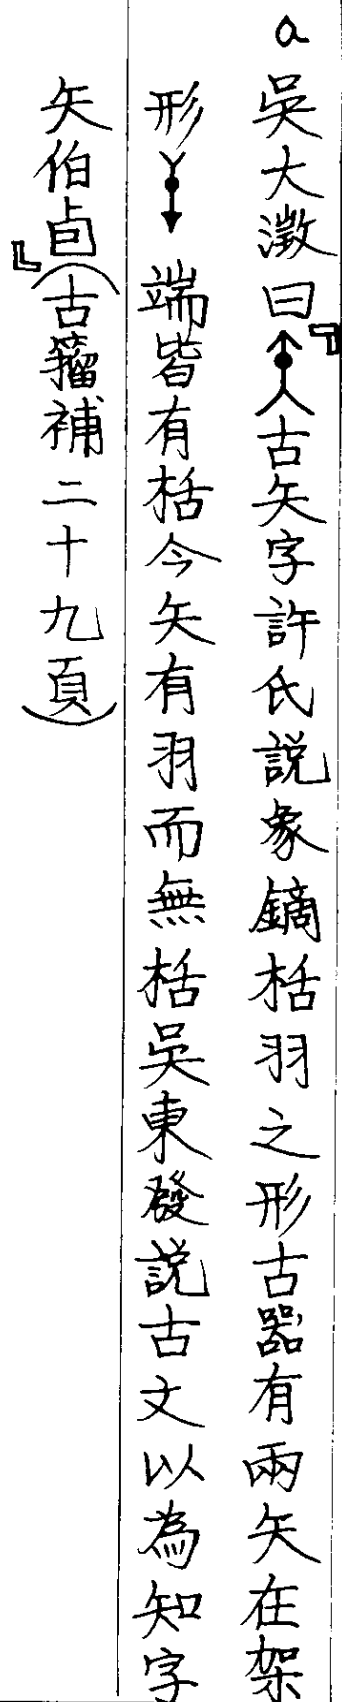 a 吳大澂曰『古矢字許氏説象鏑栝羽之形古器有兩矢在架
形端皆有栝今矢有羽而無栝吳東發説古文以為知字
矢伯卣』(古籀補二十九頁)